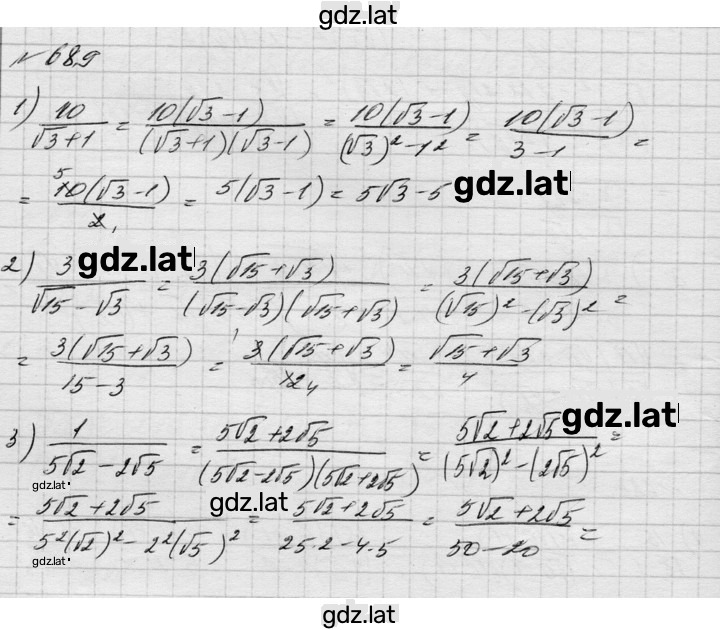 gdz.lat
№ 689
1) 10/(√3+1) = 10(√3-1)/((√3+1)(√3-1)) = 10(√3-1)/((√3)²-1²) = 10(√3-1)/(3-1) =
= 10(√3-1)/2 = 5(√3-1) = 5√3-5 gdz.lat
2) 3/(√15-√3) = 3(√15+√3)/((√15-√3)(√15+√3)) = 3(√15+√3)/((√15)²-(√3)²) =
gdz.lat
= 3(√15+√3)/(15-3) = 3(√15+√3)/12 = (√15+√3)/4
3) 1/(5√2-2√5) = (5√2+2√5)/((5√2-2√5)(5√2+2√5)) = (5√2+2√5)/((5√2)²-(2√5)²) =
gdz.lat
gdz.lat
gdz.lat
= (5√2+2√5)/(5²(√2)²-2²(√5)²) = (5√2+2√5)/(25·2-4·5) = (5√2+2√5)/(50-20) =
gdz.lat
gdz.lat